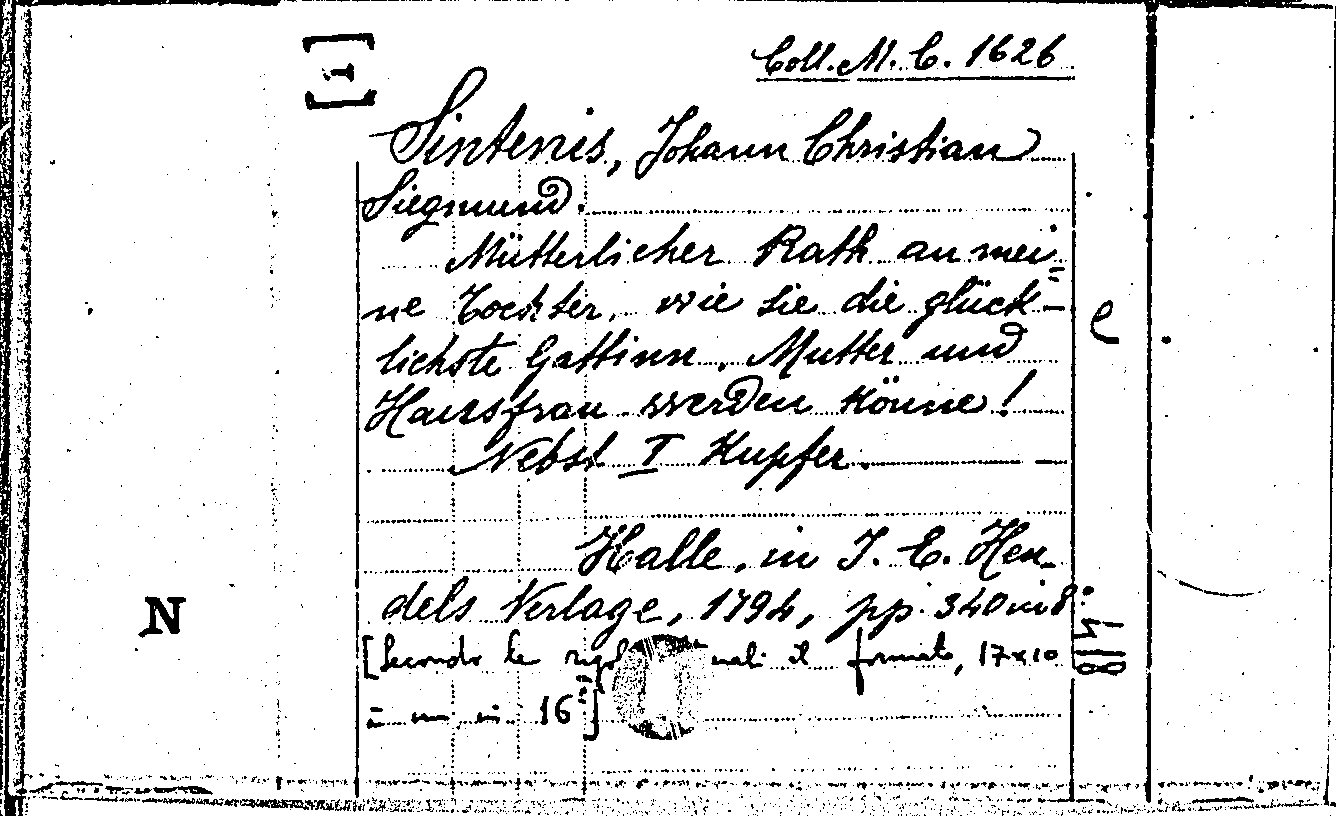 [1]
Coll. M. C. 1626
Sintenis, Johann Christian
Siegmund.
Mütterlicher Rath an mei=
ne Tochter, wie sie die glück-
lichste Gattinn, Mutter und
Hausfrau werden könne!
Nebst I Kupfer.
Halle, in J. C. Hen-
dels Verlage, 1794, pp. 340 in 8°.
[Secondo le il formato, 17x10
in 16°]
N
e